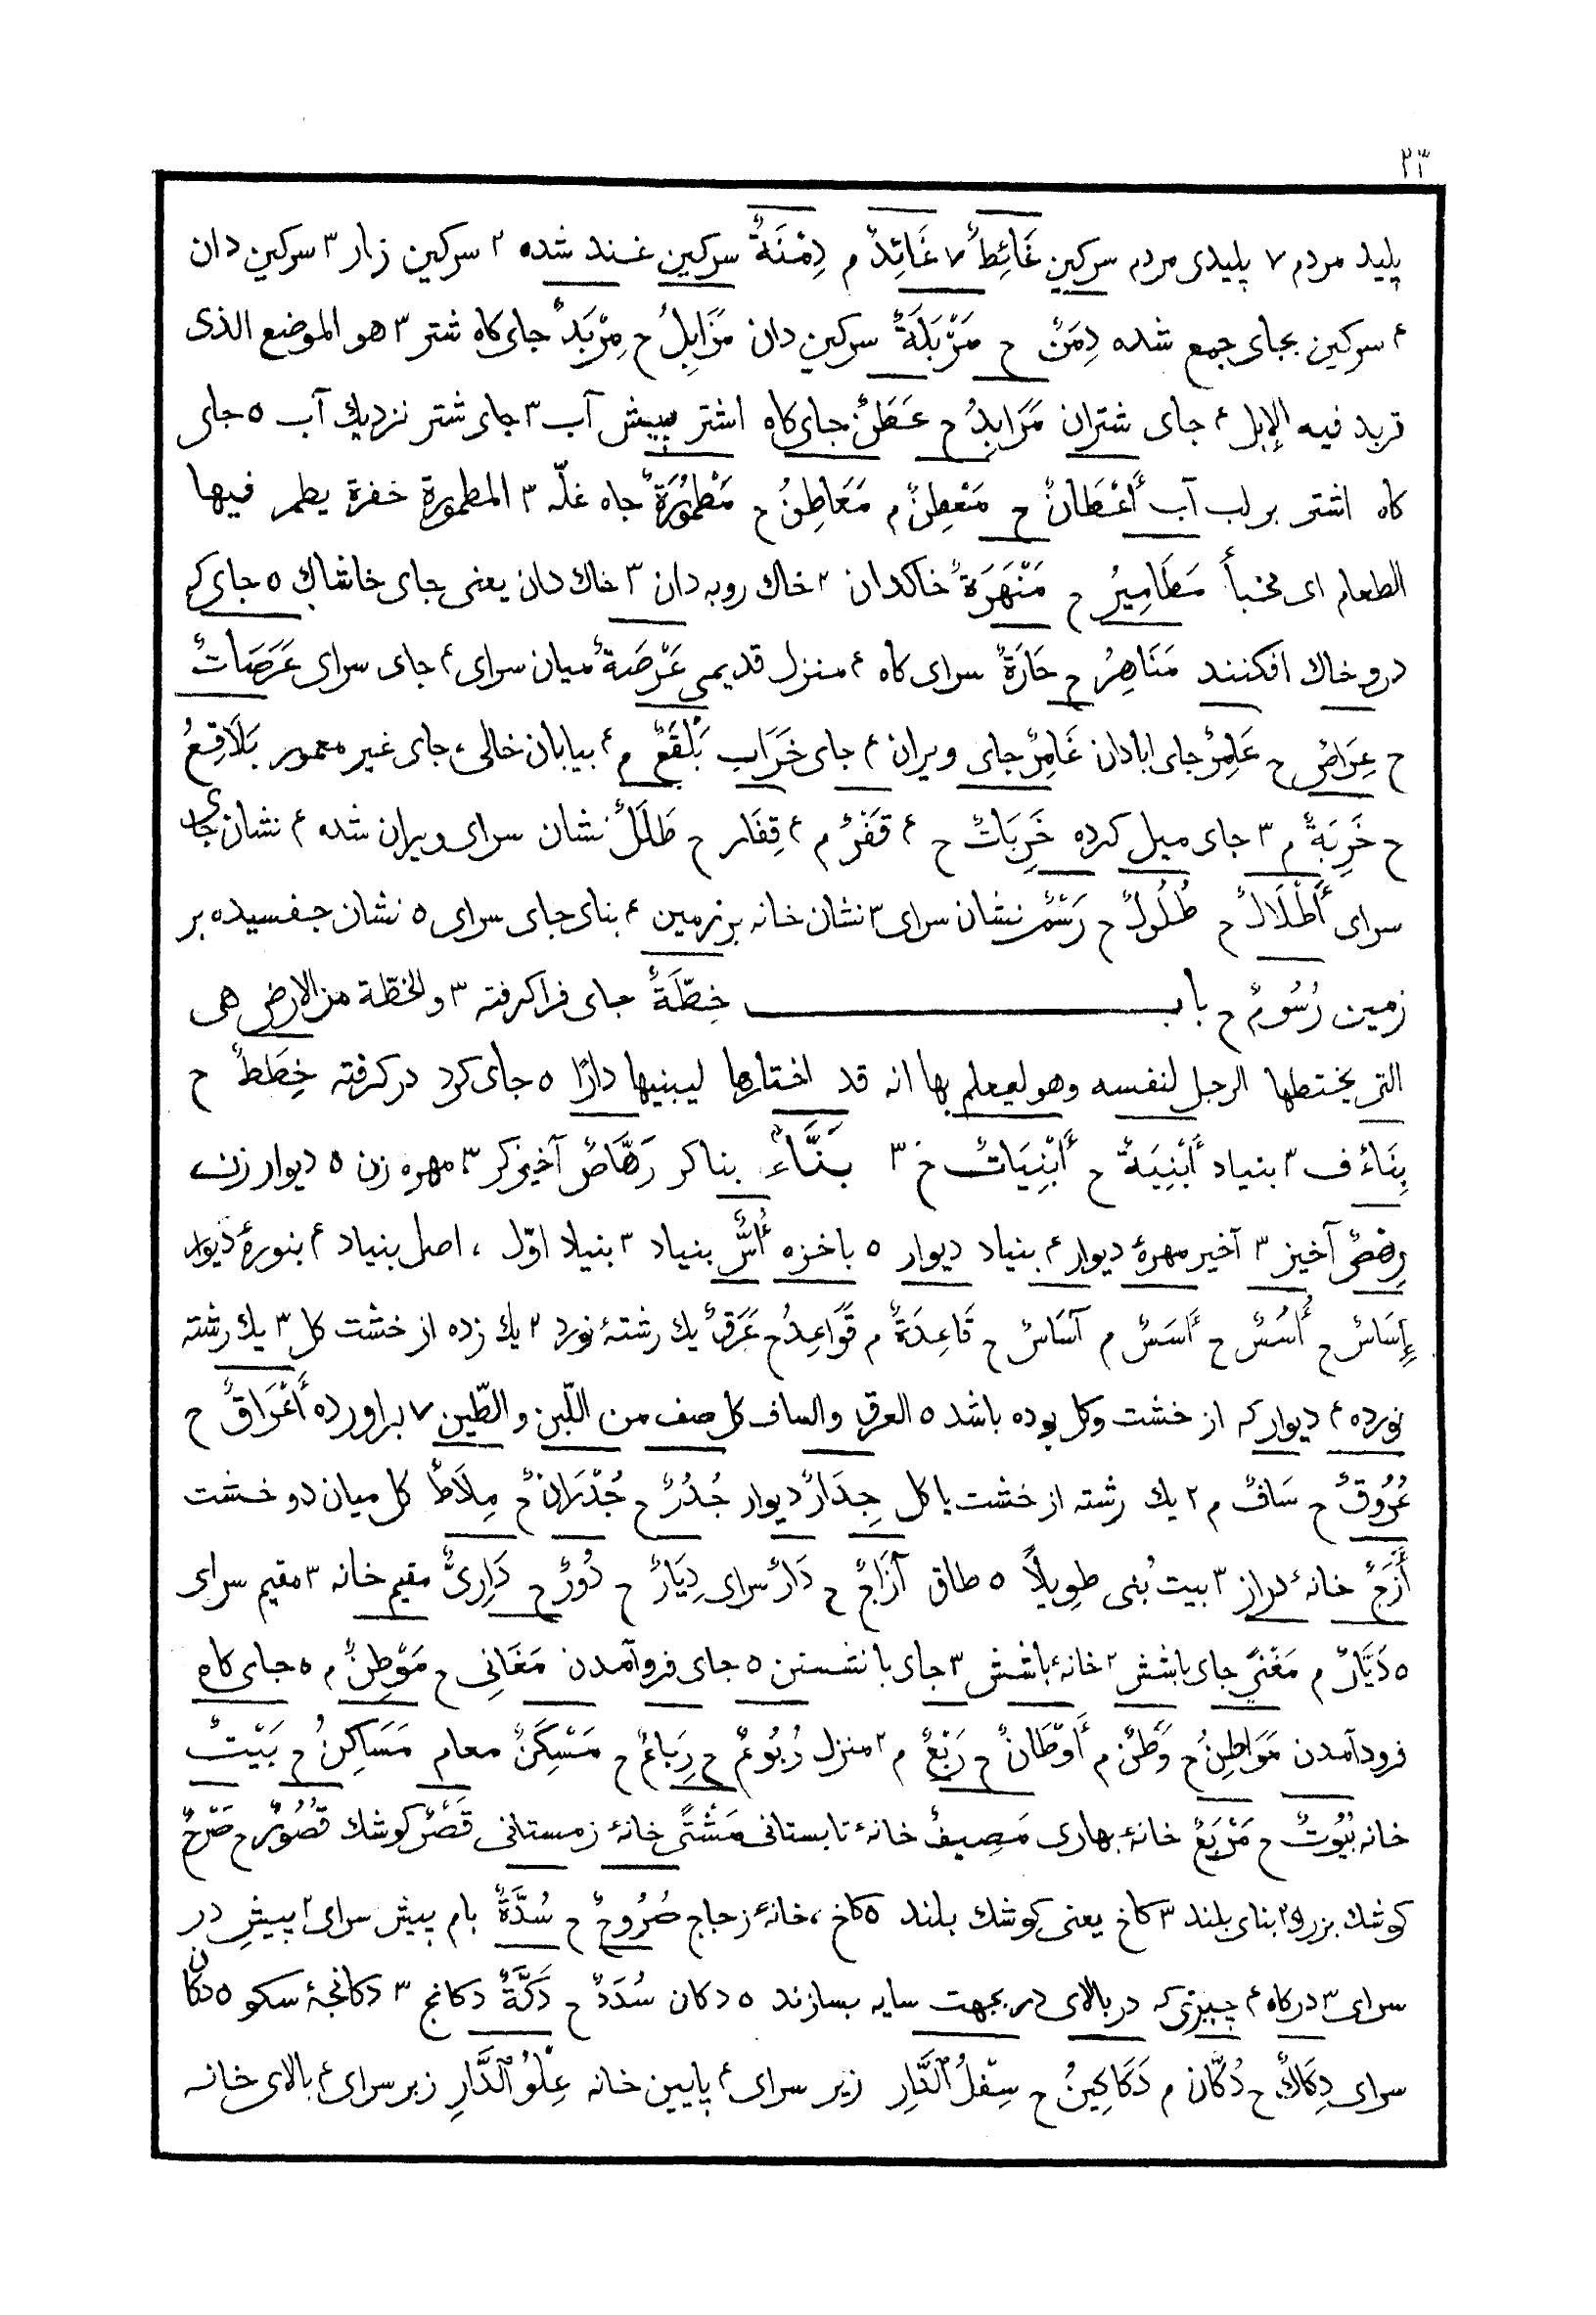 ٣٣
پلید مردم ٧ پلیدی مردم سرکین غَائِطٌ ٧ غَائِدٌ م دِمْنَةٌ سرکین غند شده ٢ سرکین زار ٣ سرکین دان
۴ سرکین بجای جمع شده دِمَنٌ ح مَزْبَلَةٌ سرکین دان مَزَابِلُ ح مِرْبَدٌ جای کاه شتر ٣ هو الموضع الذی
تربد فیه الإبل ۴ جای شتران مَرَابِدُ ح عَطَنٌ جای کاه اشتر بپیش آب ٣ جای شتر نزدیك آب ۵ جای
کاه اشتر بر لب آب أَعْطَانٌ ح مَعْطِنٌ م مَعَاطِنُ ح مَطْمُورَةٌ جاه غلّه ٣ المطمورة حفرة یطمر فیها
الطعام ای یخبأ مَطَامِیرُ ح مَنْهَرَةٌ خاکدان ٢ خاك روبه دان ٣ خاك دان یعنی جای خاشاك ۵ جای کی
درو خاك افکنند مَنَاهِرُ ح حَارَةٌ سرای کاه ۴ منزل قدیمی عَرْصَةٌ میان سرای ۴ جای سرای عَرَصَاتٌ
ح عِرَاصٌ ح عَامِرٌ جای ابادان غَامِرٌ جای ویران ۴ جای خَرَاب بَلْقَعٌ م ۴ بیابان خالی، جای غیر معمور بَلَاقِعُ
ح خَرِبَةٌ م ٣ جای میل کرده خَرِبَاتٌ ح ۴ قَفْرٌ م ۴ قِفَار ح طَلَلٌ نشان سرای ویران شده ۴ نشان جای
سرای أَطْلَالٌ ح طُلُولٌ ح رَسْمٌ نشان سرای ٣ نشان خانه بر زمین ۴ بنای جای سرای ۵ نشان جفسیده بر
زمین رُسُومٌ ح باب خِطَّةٌ جای فرا کرفته ٣ والخطّة من الارض هی
التی یختطها الرجل لنفسه وهو لیعلم بها انه قد اختارها لیبنیها دارًا ۵ جای کرد در کرفته خِطَطٌ ح
بِنَاءٌ ف ٣ بنیاد أَبْنِیَةٌ ح أَبْنِیَاتٌ خ ٣ بَنَّاءٌ بناکر رَهَّاصٌ آخیزکر ٣ مهره زن ۵ دیوار زن
رِهْصٌ آخیز ٣ آخیر مهرهٔ دیوار ۴ بنیاد دیوار ۵ باخزه أُسٌّ بنیاد ٣ بنیاد اوّل، اصل بنیاد ۴ بنورهٔ دیوار
إِسَاسٌ ح أُسُسٌ ح أَسَسٌ م آسَاسٌ ح قَاعِدَةٌ م قَوَاعِدُ ح عَرَقٌ یك رشتهٔ نورد ٢ یك زده از خشت کل ٣ یك رشته
نورده ۴ دیوار که از خشت وکل بوده باشد ۵ العرق والساف کل صف من اللّبن والطّین ٧ براورده أَعْرَاقٌ ح
عُرُوقٌ ح سَافٌ م ٢ یك رشته از خشت یا کل جِدَارٌ دیوار جُدُرٌ ح جُدْرَانٌ ح مِلَاطٌ کل میان دو خشت
أَزَجٌ خانهٔ دراز ٣ بیت بُنی طویلاً ۵ طاق آزَاجٌ ح دَارٌ سرای دِیَارٌ ح دُورٌ ح دَارِیٌّ مقیم خانه ٣ مقیم سرای
۵ دَیَّارٌ م مَغْنًی جای باشش ٢ خانهٔ باشش ٣ جای با نشستن ۵ جای فروآمدن مَغَانِی ح مَوْطِنٌ م ۵ جای کاه
فرودآمدن مَوَاطِنُ ح وَطَنٌ م أَوْطَانٌ ح رَبْعٌ م ٢ منزل رُبُوعٌ ح رِبَاعٌ ح مَسْکَنٌ معام مَسَاکِنُ ح بَیْتٌ
خانه بُیُوتٌ ح مَرْبَعٌ خانهٔ بهاری مَصِیفٌ خانهٔ تابستانی مَشْتًی خانهٔ زمستانی قَصْرٌ کوشك قُصُورٌ ح صَرْحٌ
کوشك بزرك ٢ بنای بلند ٣ کاخ یعنی کوشك بلند ۵ کاخ، خانهٔ زجاج صُرُوحٌ ح سُدَّةٌ بام پیش سرای ٢ پیش در
سرای ٣ درکاه ۴ چیزی که در بالای در بجهت سایه بسازند ۵ دکان سُدَدٌ ح دَکَّةٌ دکانج ٣ دکانجهٔ سکو ۵ دکان
سرای دِکَاكٌ ح دُکَّان م دَکَاکِینُ ح سِفْلُ ٱلدَّارِ زیر سرای ۴ پایین خانه عِلْوُ ٱلدَّارِ زبر سرای ۴ بالای خانه